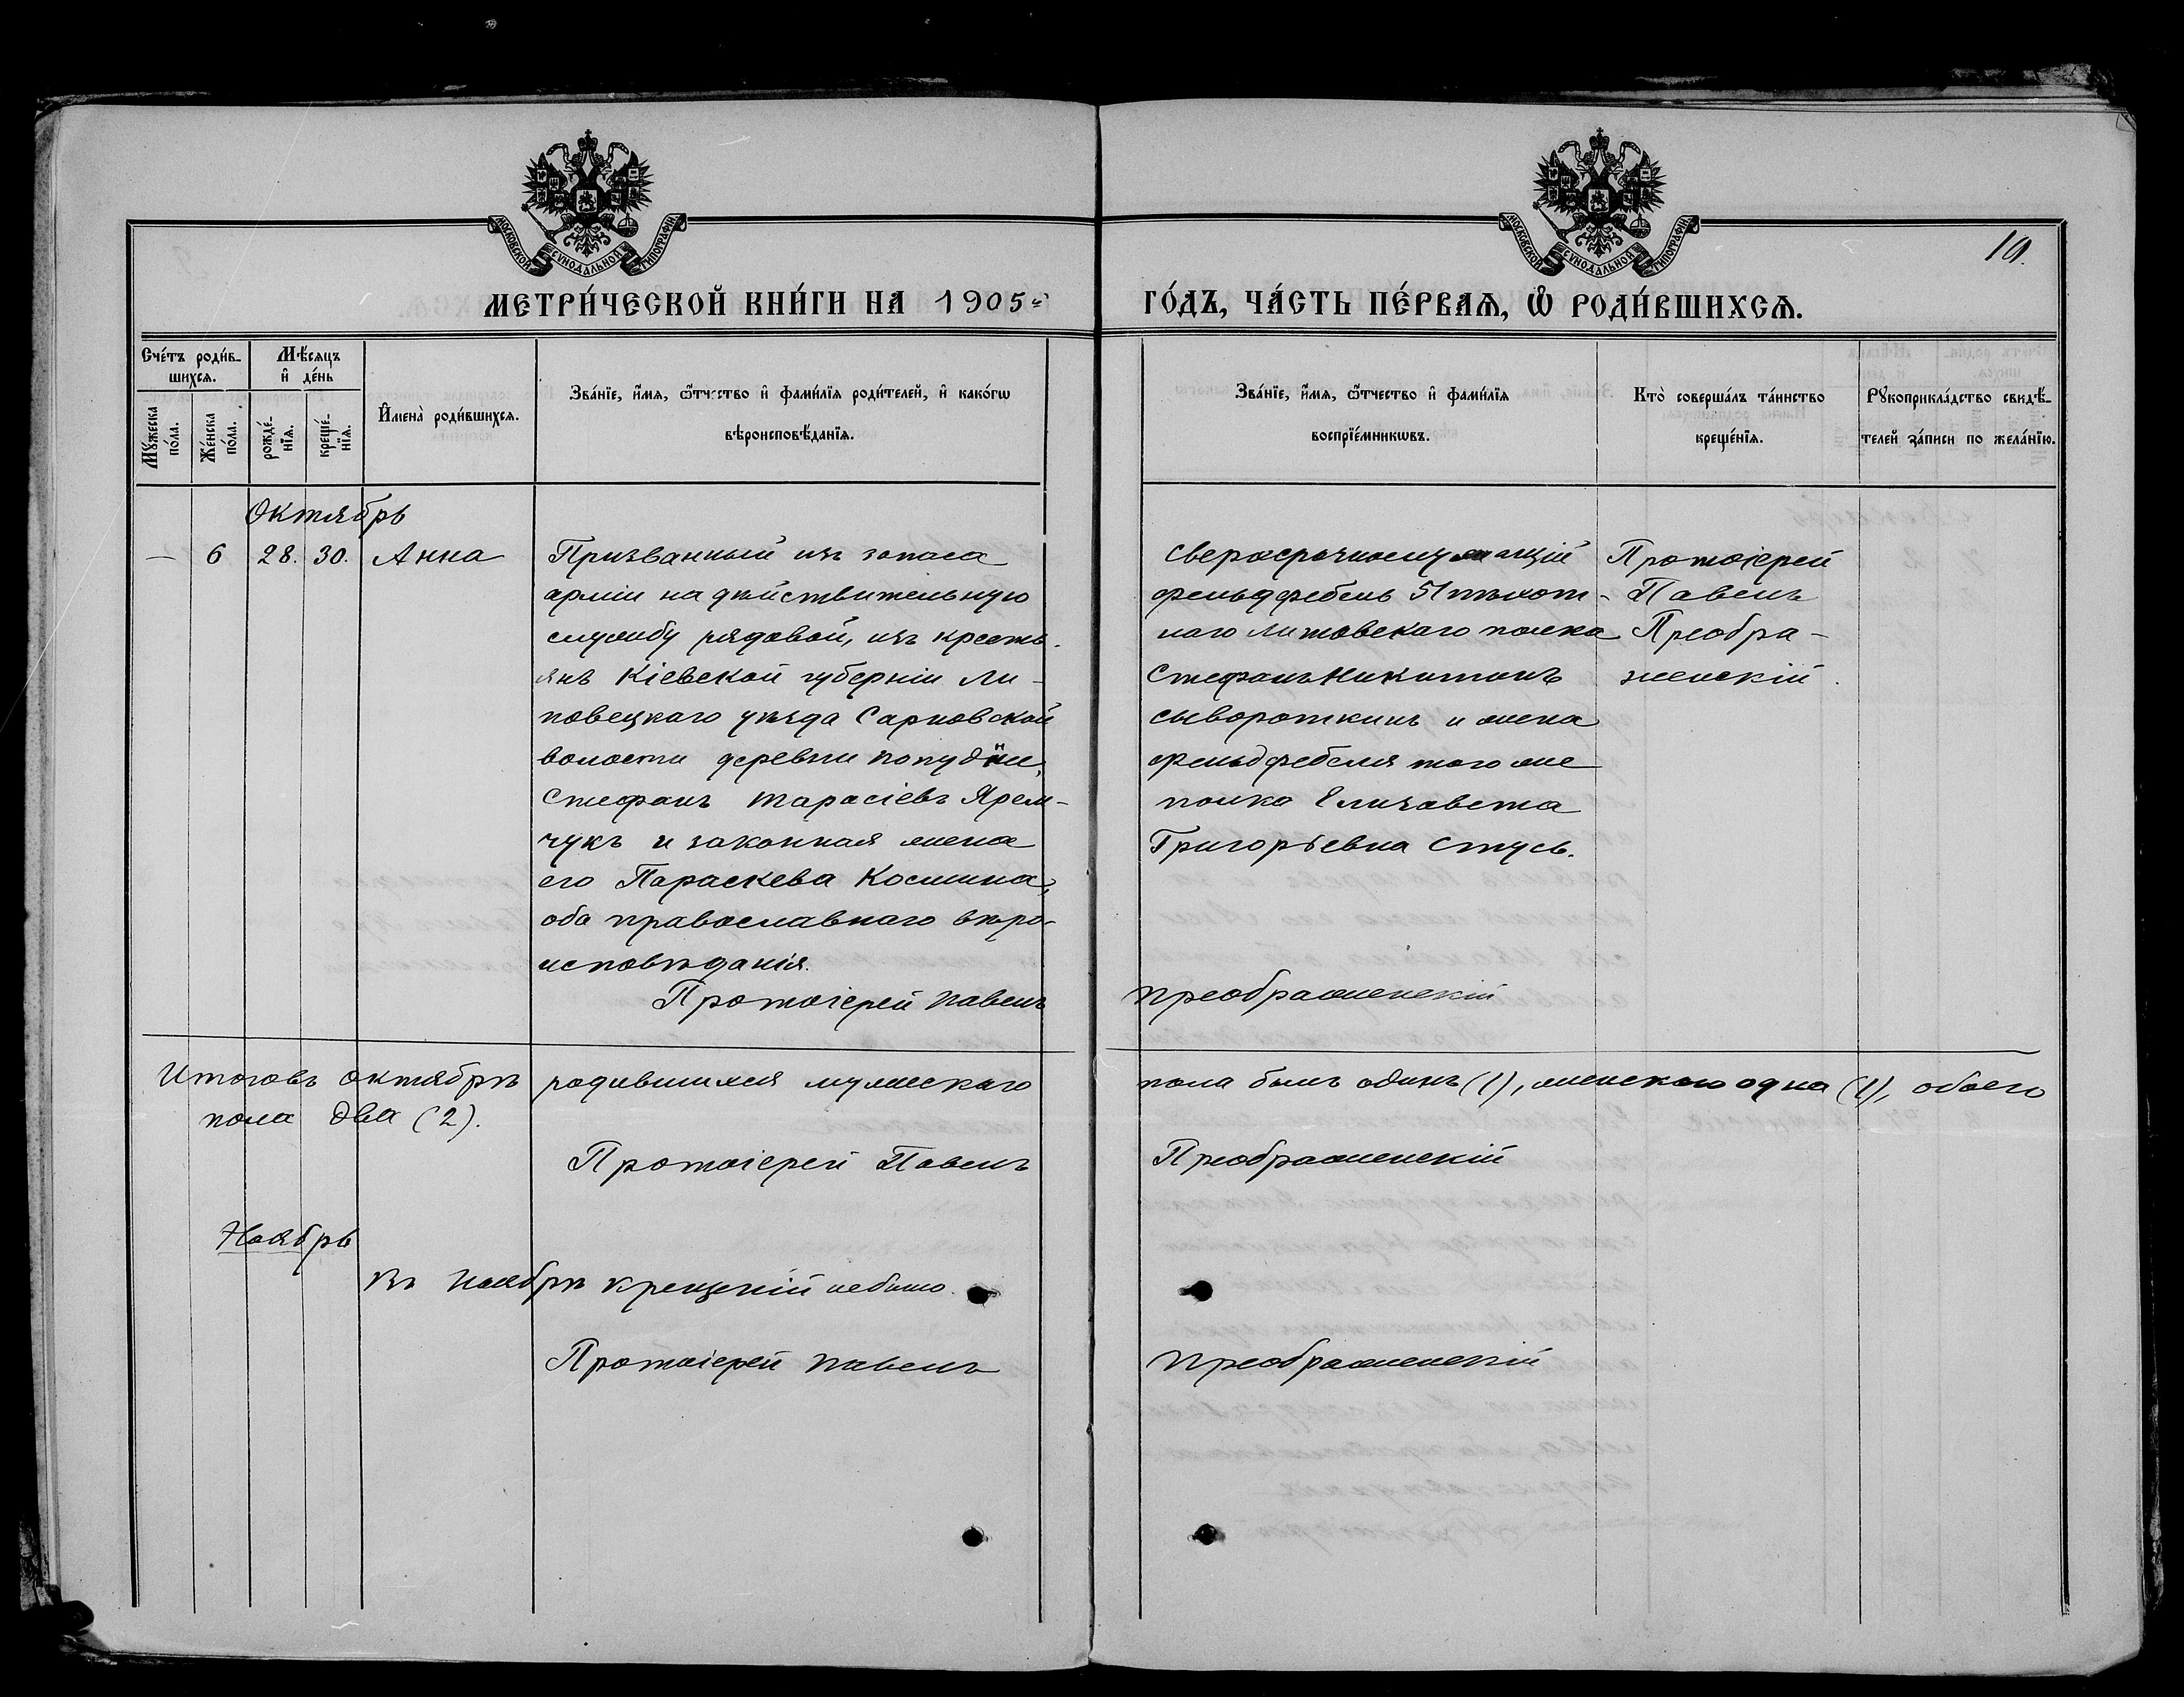 МОСКОВСКОЙ СѴНОДАЛЬНОЙ ТИПОГРАФІИ
МОСКОВСКОЙ СѴНОДАЛЬНОЙ ТИПОГРАФІИ
19.
МЕТРИ́ЧЕСКОЙ КНИ́ГИ НА 1905 й ГО́ДЪ, ЧА́СТЬ ПЕ́РВАѦ, Ѿ РОДИ́ВШИХСѦ.
Сче́тъ роди́в-
шихсѧ.
Мꙋ́жеска по́ла.
Же́нска по́ла.
Мѣ́сяцъ
и҆ де́нь
рожде́-
нїѧ.
креще́-
нїѧ.
И҆мена̀ роди́вшихсѧ.
Зва́нїе, и҆́мѧ, ѻ҆́тчество и҆ фами́лїѧ роди́телей, и҆ како́гѡ
вѣроисповѣ́данїѧ.
Зва́нїе, и҆́мѧ, ѻ҆́тчество и҆ фами́лїѧ
воспрїе́мникѡвъ.
Кто̀ соверша́лъ та́инство
креще́нїѧ.
Рꙋкоприкла́дство свидѣ́-
телей за́писи по жела́нїю.
Октябрь
— 6 28. 30. Анна
Призванный изъ запаса
арміи на дѣйствительную
службу рядовой, изъ кресть-
янъ Кіевской губерніи Ли-
повецкаго уѣзда Сарновской
волости деревни Попудни,
Стефанъ Тарасіевъ Ярем-
чукъ и законная жена
его Параскева Космина,
оба православнаго вѣро-
исповѣданія.
Протоіерей Павелъ Преображенскій
Сверхсрочнослужащій
фельдфебель 51 пѣхот-
наго Литовскаго полка
Стефанъ Никитинъ
Сывороткинъ и жена
фельдфебеля того же
полка Елизавета
Григорьевна Стусь.
Протоіерей
Павелъ
Преобра-
женскій.
Итоговъ октябрѣ родившихся мужескаго пола былъ одинъ (1), женскаго одна (1), обоего
пола два (2).
Протоіерей Павелъ Преображенскій
Ноябрь
Въ ноябрѣ крещеній не было.
Протоіерей Павелъ Преображенскій